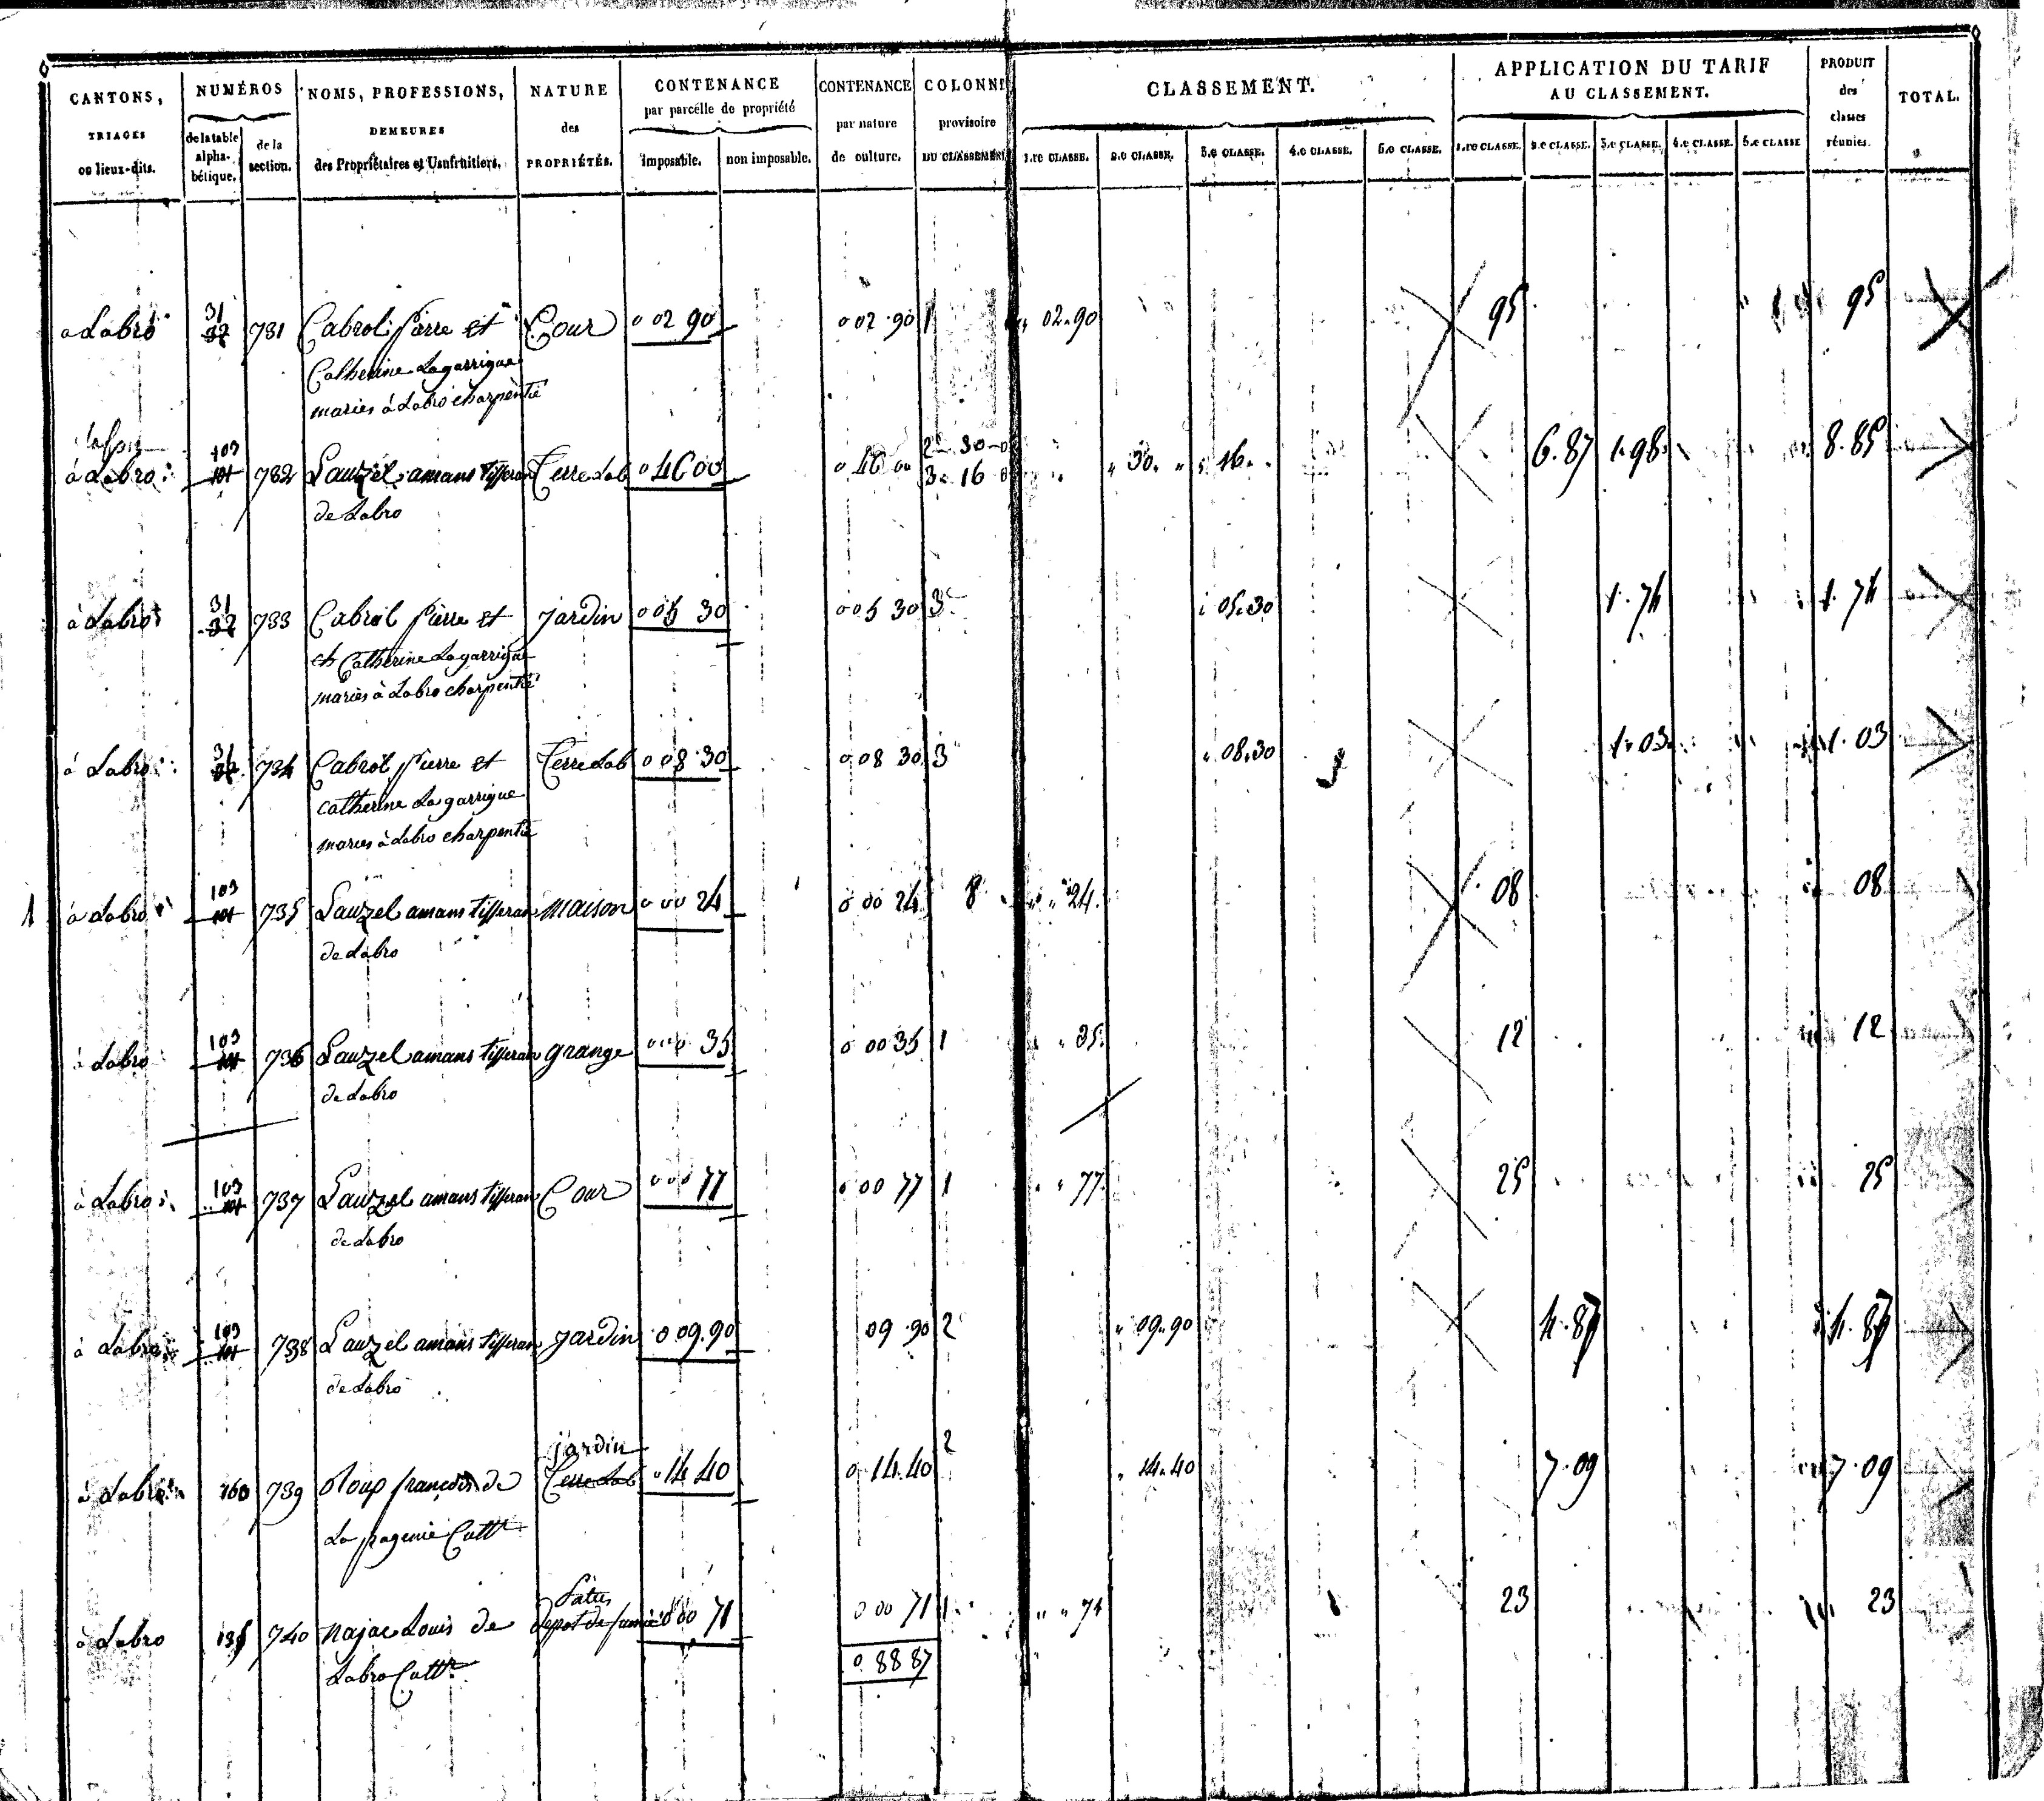 CANTONS, TRIAGES ou lieux-dits.
NUMÉROS
de la table alphabétique.
de la section.
NOMS, PROFESSIONS, DEMEURES des Propriétaires et Usufruitiers.
NATURE des PROPRIÉTÉS.
CONTENANCE par parcelle de propriété
imposable.
non imposable.
CONTENANCE par nature de culture.
COLONNE provisoire DU CLASSEMENT
CLASSEMENT.
1.re CLASSE. 2.e CLASSE. 3.e CLASSE. 4.e CLASSE. 5.e CLASSE.
APPLICATION DU TARIF AU CLASSEMENT.
1.re CLASSE. 2.e CLASSE. 3.e CLASSE. 4.e CLASSE. 5.e CLASSE
PRODUIT des classes réunies.
TOTAL.
a Labro 31 32 731 Cabrol Pierre et Cour 0 02 90 0 02 90 1 02.90 95 95
Catherine Lagarrigue
mariés à Labro charpentié
à Labro 103 101 732 Lauzel amans tisseran Terre Lab 0 46 00 0 46 00 2e 30-0 30 16 6.87 1.98 8.85
3e 16 0
de Labro
à Labro 31 32 733 Cabrol Pierre et jardin 0 05 30 0 05 30 3e 05.30 1.74 1.74
et Catherine Lagarrigue
mariés à Labro charpentié
à Labro 31 32 734 Cabrol Pierre et Terre Lab 0 08 30 0 08 30 3 08.30 1.03 1.03
catherine Lagarrigue
mariés à Labro charpentié
1 à Labro 103 101 735 Lauzel amans tisseran maison 0 00 24 0 00 24 8 24 08 08
de Labro
à Labro 103 101 736 Lauzel amans tisseran grange 0 00 35 0 00 35 1 35 12 12
de Labro
à Labro 103 101 737 Lauzel amans tisseran Cour 0 00 77 0 00 77 1 77 25 25
de Labro
à Labro 103 101 738 Lauzel amans tisseran jardin 0 09.90 09.90 2 09.90 4.87 4.87
de Labro
jardin
à Labro 160 739 oloup françois de Terre Lab 0 14 40 0 14.40 2 14.40 7.09 7.09
La pagenie Cultr
Patus
à Labro 135 740 najac Louis de depot de fumié 0 00 71 0 00 71 1 71 23 23
Labro Cultr
0 88 87